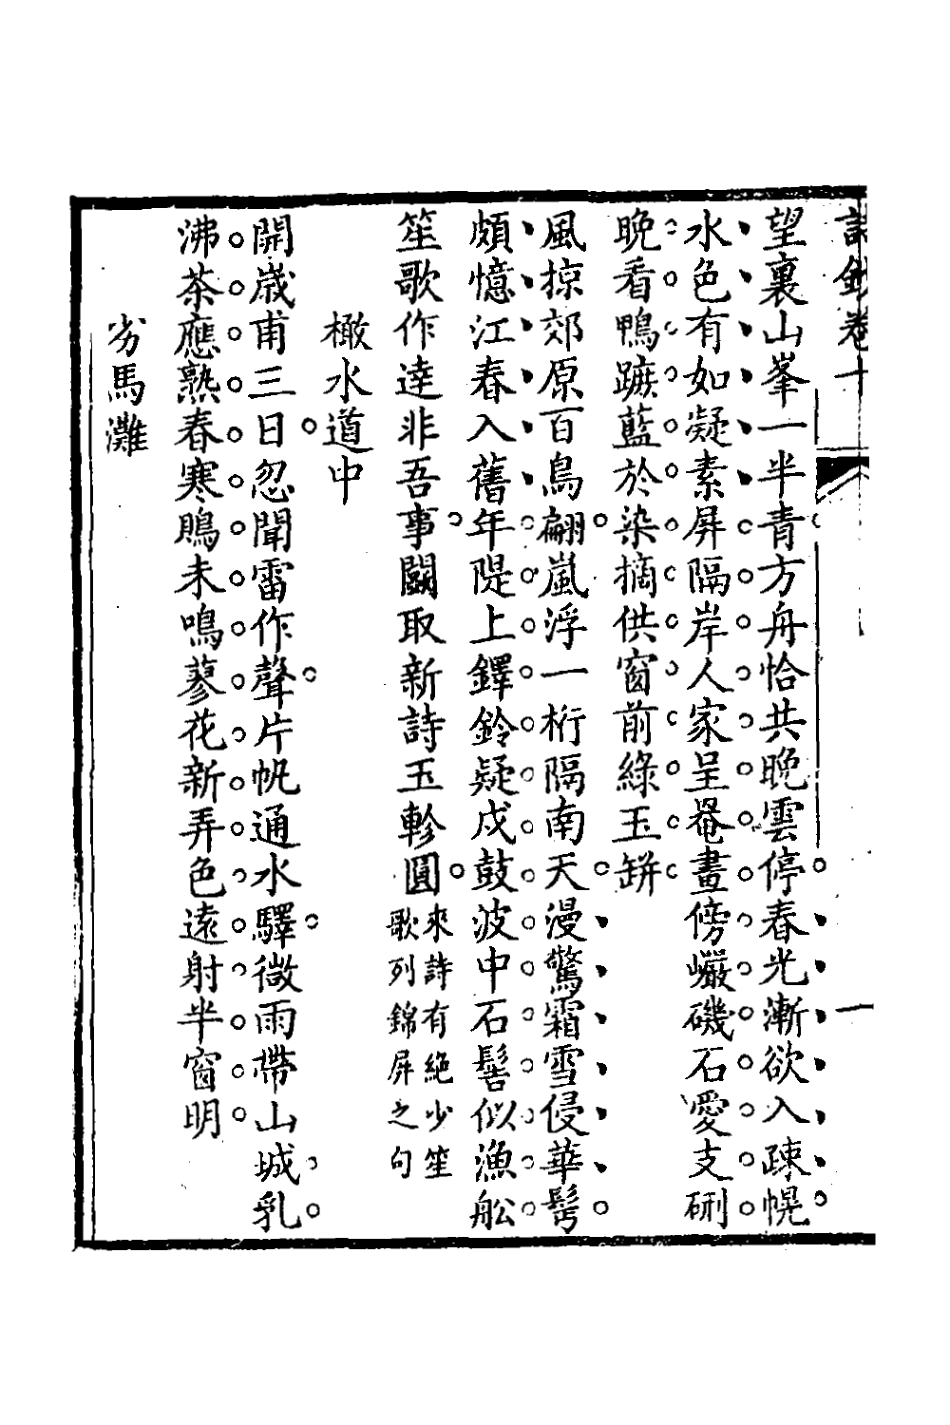 詩鈔卷十
一
望裏山峯一半青方舟恰共晚雲停春光漸欲入疎幌
水色有如凝素屏隔岸人家呈罨畫傍巗磯石愛支硎
晚看鴨蹠藍於染摘供窗前綠玉缾
風掠郊原百鳥翩嵐浮一桁隔南天漫驚霜雪侵華髩
頗憶江春入舊年隄上鐸鈴疑戍鼓波中石髻似漁舩
笙歌作達非吾事鬪取新詩玉軫圓來詩有絶少笙歌列錦屏之句
橄水道中
開歲甫三日忽聞雷作聲片帆通水驛微雨帶山城乳
沸茶應熟春寒鵙未鳴蓼花新弄色遠射半窗明
劣馬灘